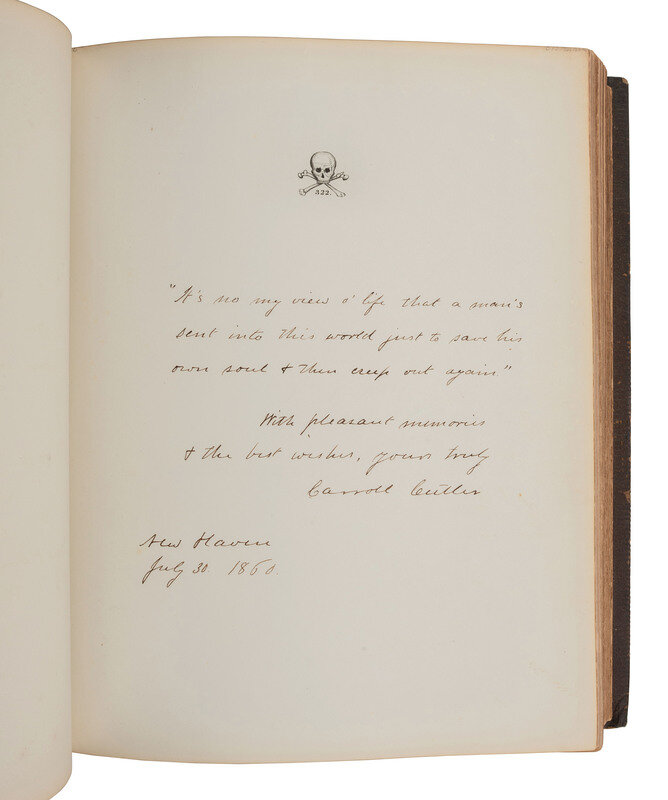 322.
"It's no my view o' life that a man's
sent into this world just to save his
own soul & then creep out again."
With pleasant memories
& the best wishes, yours truly
Carroll Cutler
New Haven
July 30. 1860.